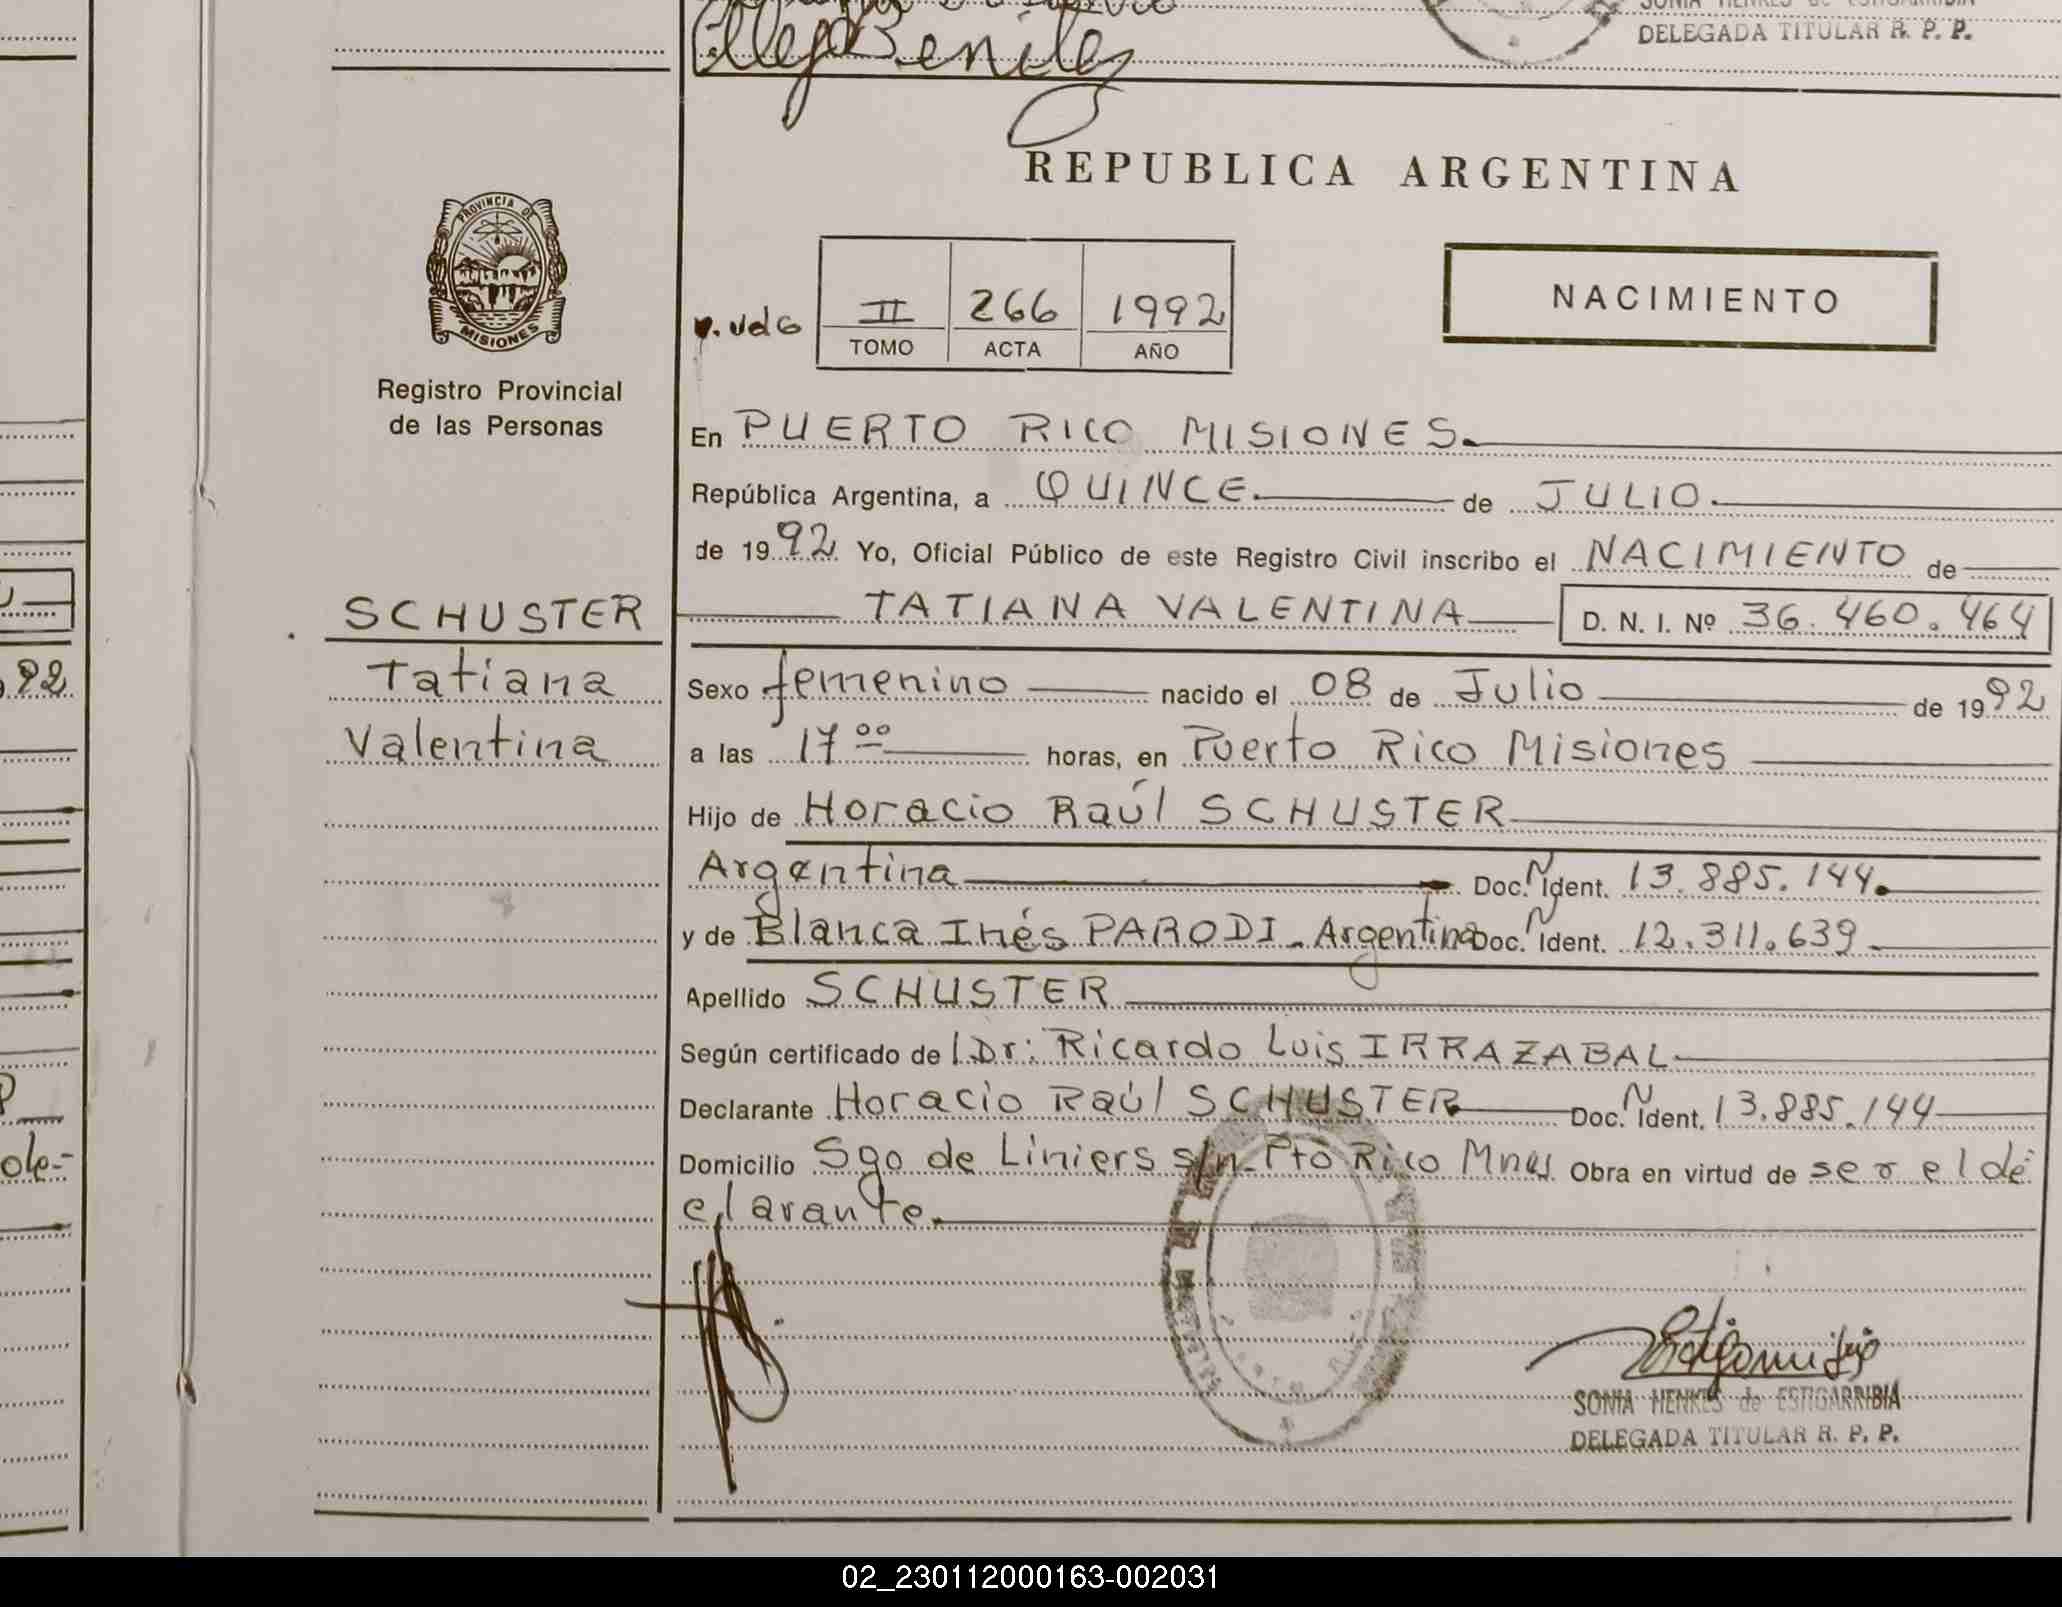 Benitez
SONIA HENKES de ESTIGARRIBIA
DELEGADA TITULAR R. P. P.
REPUBLICA ARGENTINA
PROVINCIA DE
MISIONES
Registro Provincial
de las Personas
II 266 1992
TOMO ACTA AÑO
NACIMIENTO
En PUERTO RICO MISIONES.
República Argentina, a QUINCE de JULIO.
de 1992 Yo, Oficial Público de este Registro Civil inscribo el NACIMIENTO de
TATIANA VALENTINA D. N. I. Nº 36.460.464
SCHUSTER
Tatiana
Valentina
Sexo femenino nacido el 08 de Julio de 1992
a las 17 00 horas, en Puerto Rico Misiones
Hijo de Horacio Raúl SCHUSTER
Argentina Doc. N Ident. 13.885.144.
y de Blanca Inés PARODI. Argentina Doc. N Ident. 12.311.639
Apellido SCHUSTER
Según certificado de l Dr: Ricardo Luis IRRAZABAL
Declarante Horacio Raúl SCHUSTER Doc. N Ident. 13.885.144
Domicilio Sgo de Liniers s/n. Pto Rico Mnes Obra en virtud de ser el de
clarante.
SONIA HENKES de ESTIGARRIBIA
DELEGADA TITULAR R. P. P.
92
ole-
02_230112000163-002031